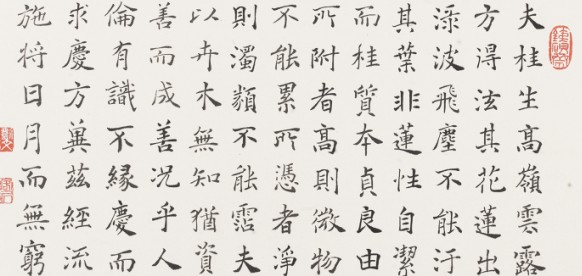 夫桂生高嶺雲露
方得泫其花蓮出
淥波飛塵不能汙
其葉非蓮性自潔
而桂質本貞良由
所附者高則微物
不能累所憑者淨
則濁類不能霑夫
以卉木無知猶資
善而成善況乎人
倫有識不緣慶而
求慶方冀茲經流
施將日月而無窮